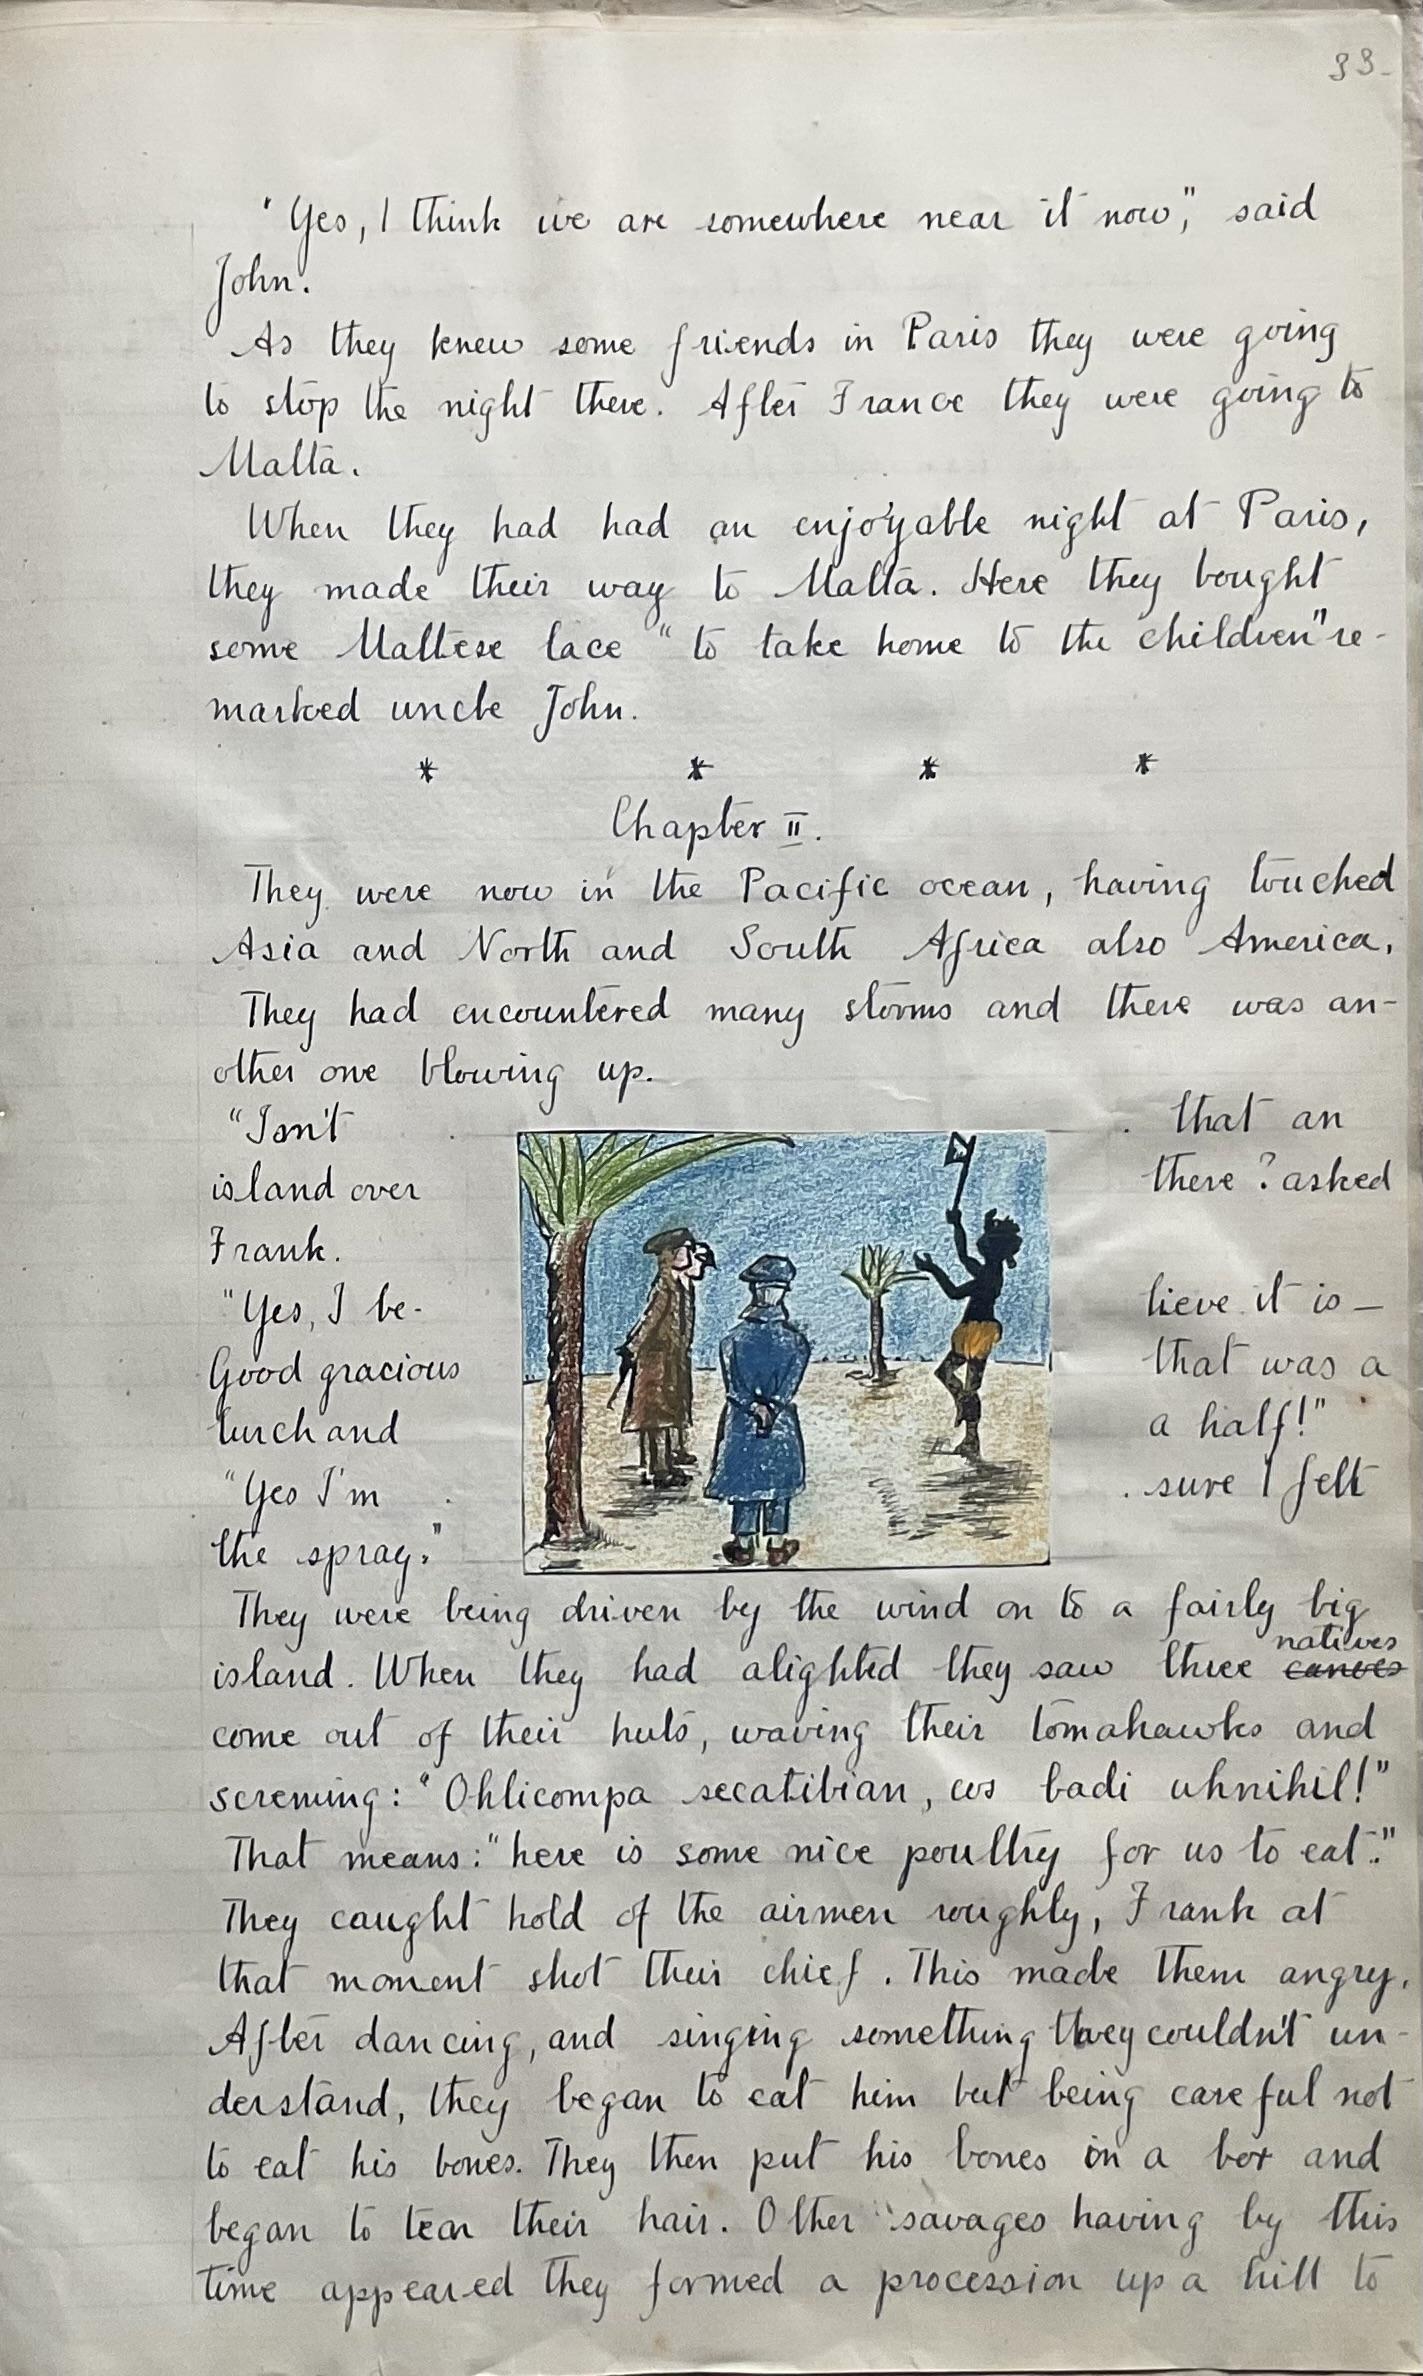 33-
"Yes, I think we are somewhere near it now," said
John.
As they knew some friends in Paris they were going
to stop the night there. After France they were going to
Malta.
When they had had an enjoyable night at Paris,
they made their way to Malta. Here they bought
some Maltese lace "to take home to the children" re-
marked uncle John.
* * * *
Chapter II.
They were now in the Pacific ocean, having touched
Asia and North and South Africa also America.
They had encountered many storms and there was an-
other one blowing up.
"Isn't that an
island over there? asked
Frank.
"Yes, I be- lieve it is —
Good gracious that was a
lurch and a half!"
"Yes I'm sure I felt
the spray."
They were being driven by the wind on to a fairly big
natives
island. When they had alighted they saw three canoes
come out of their huts, waving their tomahawks and
screming: "Ohlicompa secatibian, ws badi uhnihil!"
That means: "here is some nice poultry for us to eat."
They caught hold of the airmen roughly, Frank at
that moment shot their chief. This made them angry.
After dancing, and singing something they couldn't un-
derstand, they began to eat him but being careful not
to eat his bones. They then put his bones in a box and
began to tear their hair. Other savages having by this
time appeared they formed a procession up a hill to